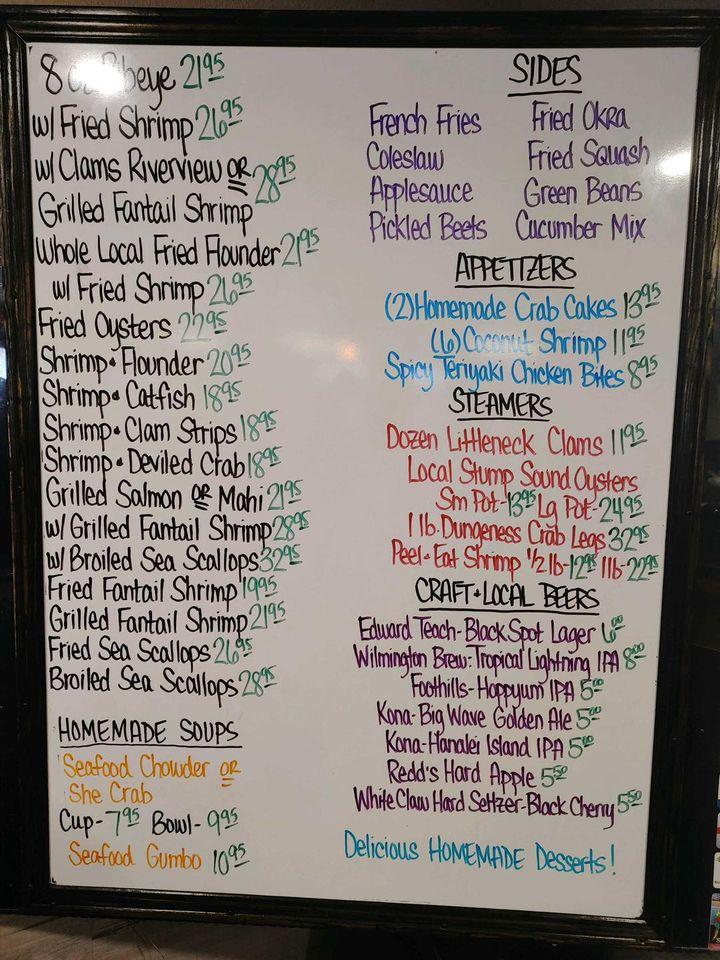 8 oz Ribeye 21.95
w/ Fried Shrimp 26.95
w/ Clams Riverview OR
Grilled Fantail Shrimp 28.95
Whole Local Fried Flounder 21.95
w/ Fried Shrimp 26.95
Fried Oysters 22.95
Shrimp + Flounder 20.95
Shrimp + Catfish 18.95
Shrimp + Clam Strips 18.95
Shrimp + Deviled Crab 18.95
Grilled Salmon OR Mahi 21.95
w/ Grilled Fantail Shrimp 28.95
w/ Broiled Sea Scallops 32.95
Fried Fantail Shrimp 19.95
Grilled Fantail Shrimp 21.95
Fried Sea Scallops 26.95
Broiled Sea Scallops 28.95
HOMEMADE SOUPS
Seafood Chowder OR
She Crab
Cup - 7.95 Bowl - 9.95
Seafood Gumbo 10.95
SIDES
French Fries Fried Okra
Coleslaw Fried Squash
Applesauce Green Beans
Pickled Beets Cucumber Mix
APPETIZERS
(2) Homemade Crab Cakes 13.95
(6) Coconut Shrimp 11.95
Spicy Teriyaki Chicken Bites 8.95
STEAMERS
Dozen Littleneck Clams 11.95
Local Stump Sound Oysters
Sm Pot - 13.95 Lg Pot - 24.95
1 lb. Dungeness Crab Legs 32.95
Peel + Eat Shrimp 1/2 lb - 12.95 1 lb - 22.95
CRAFT + LOCAL BEERS
Edward Teach - Black Spot Lager 6.00
Wilmington Brew: Tropical Lightning IPA 8.00
Foothills - Hoppyum IPA 5.00
Kona - Big Wave Golden Ale 5.00
Kona - Hanalei Island IPA 5.00
Redd's Hard Apple 5.50
White Claw Hard Seltzer - Black Cherry 5.50
Delicious HOMEMADE Desserts!